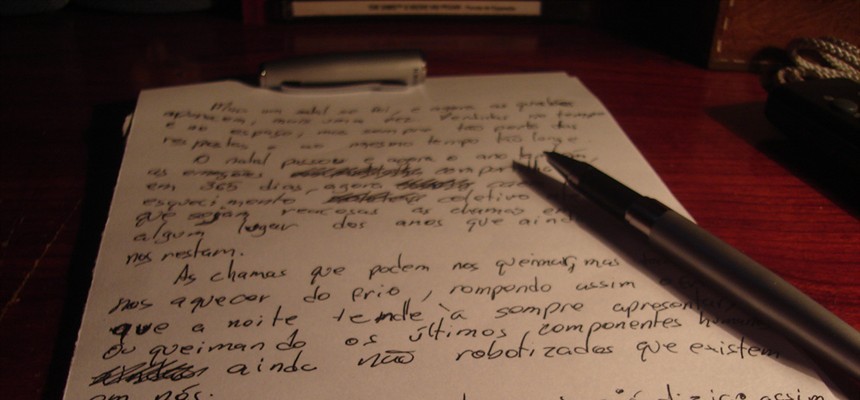 Mais um natal se foi, e agora as questões
aparecem, mais uma vez perdidas no tempo
e no espaço, mas sempre tão perto das
respostas e ao mesmo tempo tão longe.
O natal passou e agora o ano também,
as emoções
em 365 dias, agora
esquecimento coletivo
que sejam reacesas as chamas em
algum lugar dos anos que ainda
nos restam.
As chamas que podem nos queimar, mas
nos aquecer do frio, rompendo assim
que a noite tende à sempre apresentar
ou queimando os últimos componentes
ainda não robotizados que existem
em nós.
assim